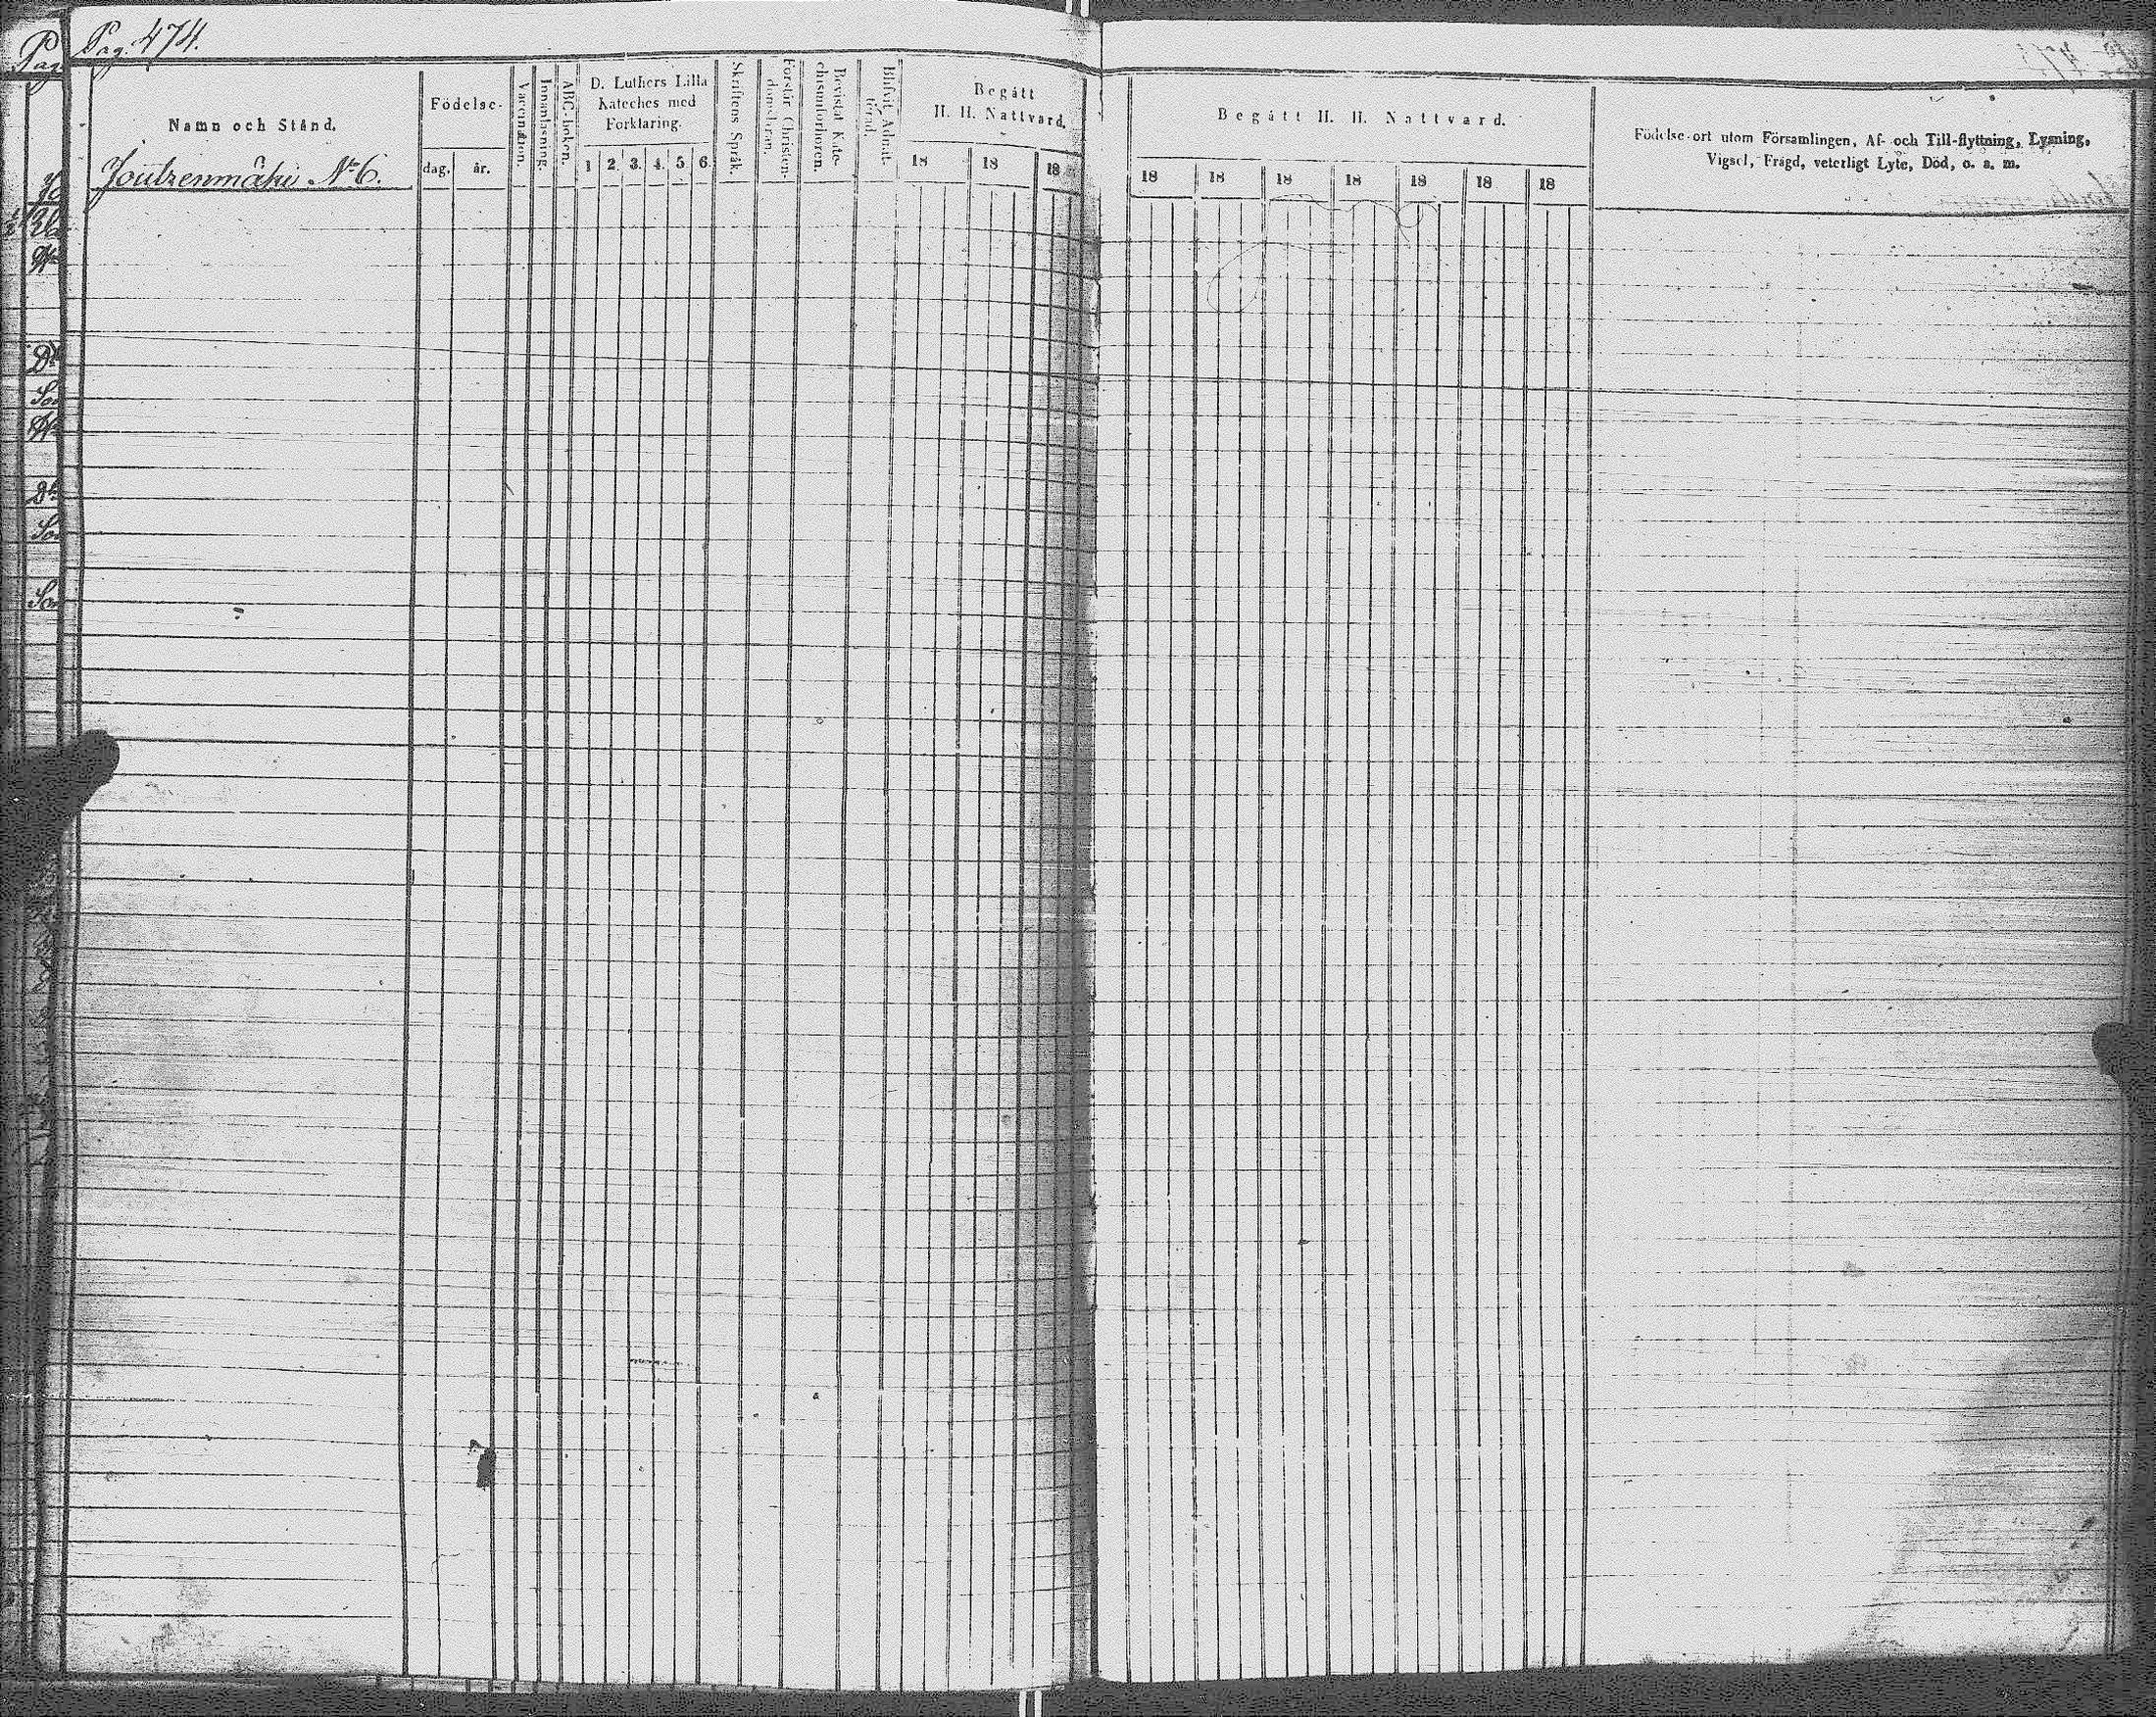 Pag. 474.
Namn och Stånd.
Joutzenmäki No 6.
Födelse-
dag.
år.
Vaccination.
Innanläsning.
ABC-boken.
D. Luthers Lilla
Kateches med
Förklaring.
1 2. 3. 4. 5. 6.
Skriftens Språk.
Förstår Christen-
domsläran.
Bevistat Kate-
chismiförhören.
Blifvit Admit-
terad.
Begått
H. H. Nattvard.
18 18 18
Begått H. H. Nattvard.
18 18 18 18 18 18 18
Födelse-ort utom Församlingen, Af- och Till-flyttning, Lysning,
Vigsel, Frägd, veterligt Lyte, Död, o. s. m.